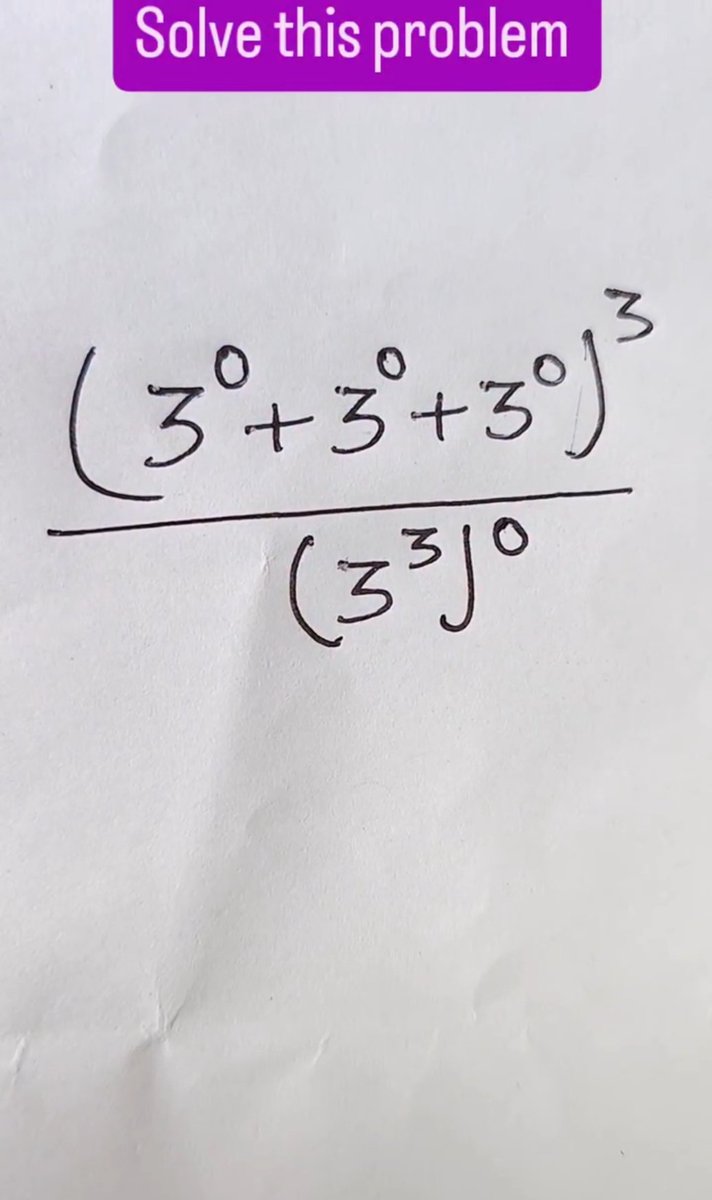 Solve this problem
(3⁰+3⁰+3⁰)³
(3³)⁰